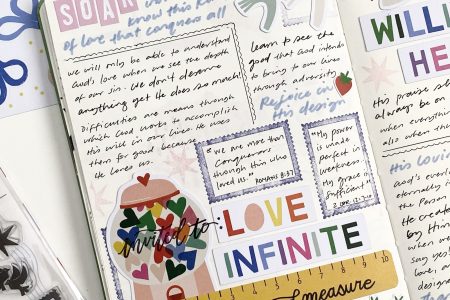 SOAK
know this kin
of love that conquers all
We will only be able to understand
God's love when we see the depth
of our sin. We don't deserve
anything yet He does so much!
Difficulties are means through
which God works to accomplish
His will in our lives. He uses
them for good because
He loves us.
learn to see the
good that God intends
to bring to our lives
through adversity.
Rejoice in
His design
"We are more than
Conquerors
through Him who
loved us." ROMANS 8:37
"My power
is made
perfect in
weakness.
My grace is
sufficient."
2 COR 12:
invited to:
LOVE
INFINITE
measure
10
WILLI
HE
His praise sh
always be on
when everythi
also when the
His lovin
God's
eternally
from the
He create
by
when we
say yes!
love, a